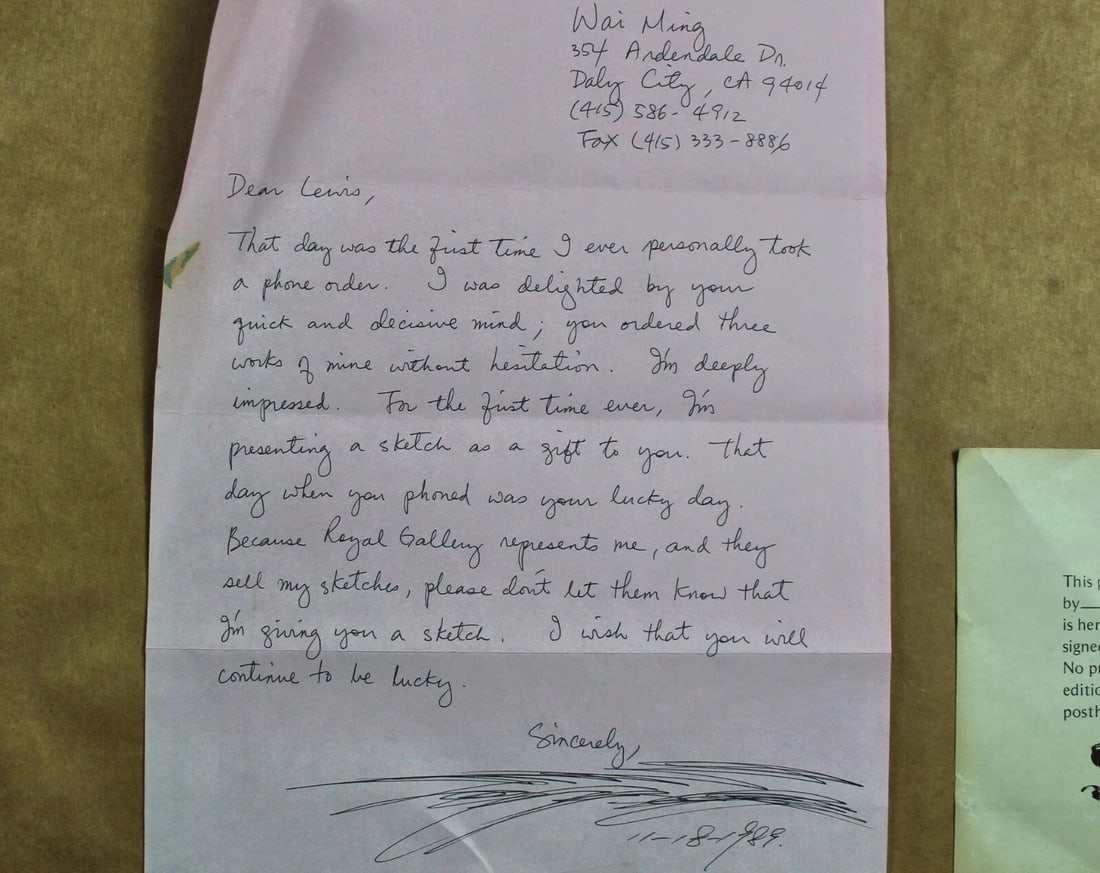 Wai Ming
354 Ardendale Dr.
Daly City, CA 94014
(415) 586-4912
Fax (415) 333-8886
Dear Lewis,
That day was the first time I ever personally took
a phone order. I was delighted by your
quick and decisive mind; you ordered three
works of mine without hesitation. I'm deeply
impressed. For the first time ever, I'm
presenting a sketch as a gift to you. That
day when you phoned was your lucky day.
Because Royal Gallery represents me, and they
sell my sketches, please don't let them know that
I'm giving you a sketch. I wish that you will
continue to be lucky.
Sincerely,
11-18-1989.
This p
by
is her
signe
No pr
editio
posth